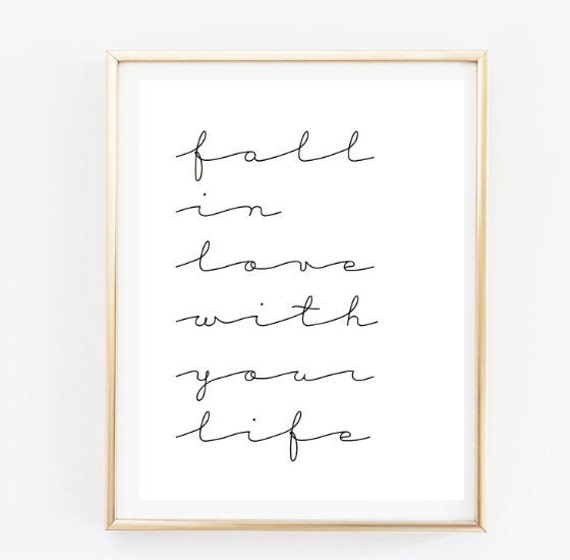 fall
in
love
with
your
life